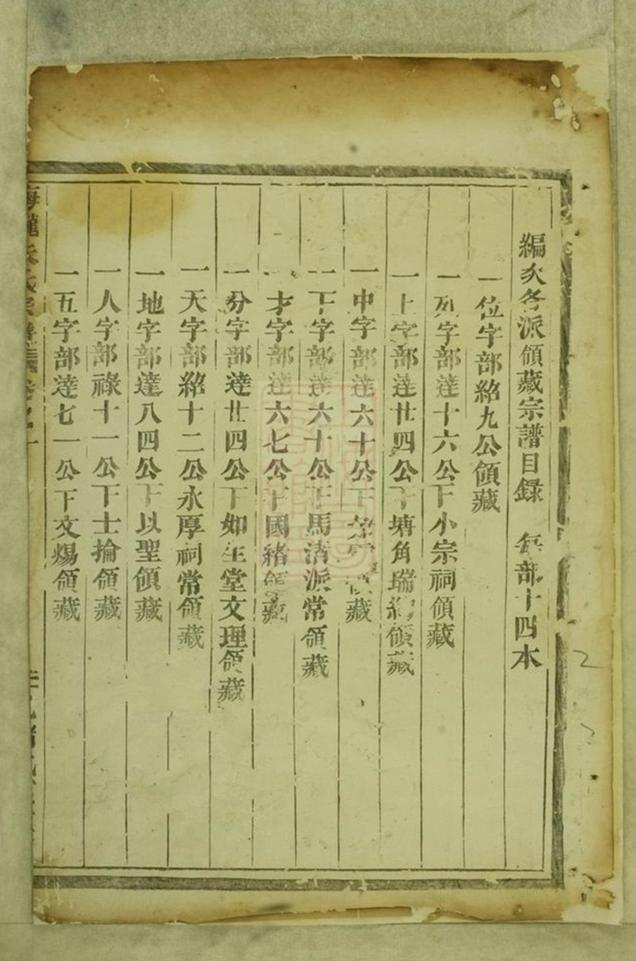 編次各派領藏宗譜目録 每部十四本
一位字部紹九公領藏
一列字部達十六公下小宗祠領藏
一上字部達廿四公下塘角瑞領藏
一中字部達六十公下領藏
一下字部達六十公下馬渚派常領藏
一才字部達六七公下國緒領藏
一分字部達廿四公下如在堂文理領藏
一天字部紹十二公永厚祠常領藏
一地字部達八四公下以聖領藏
一人字部祿十一公下士掄領藏
一五字部達七一公下文煬領藏
氏宗譜卷之